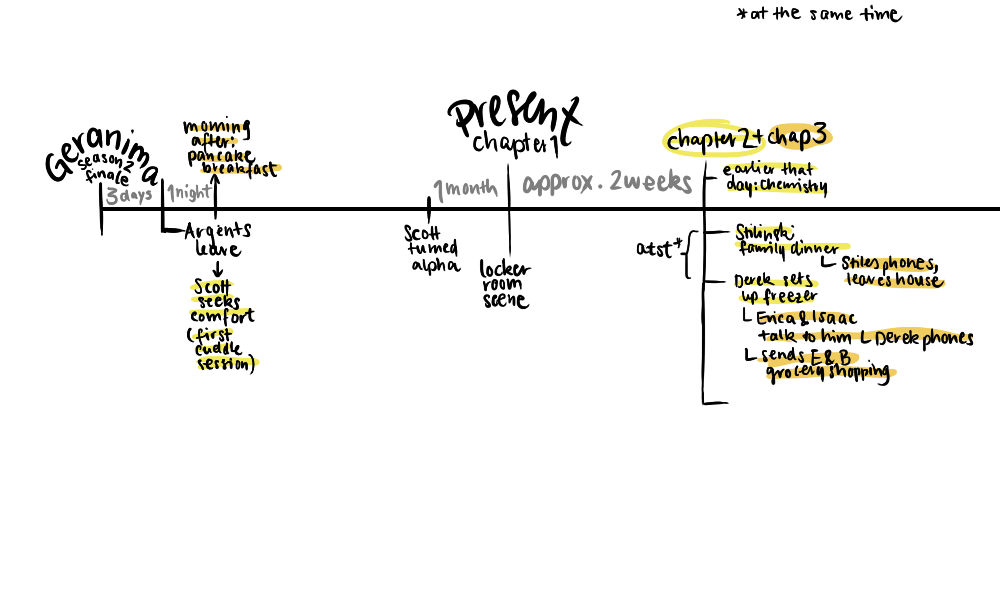 *at the same time
Geranima
season 2
finale
3 days
1 night
morning
after:
pancake
breakfast
Argents
leave
Scott
seeks
comfort
(first
cuddle
session)
Scott
turned
alpha
1 month
Present
chapter 1
locker
room
scene
approx. 2 weeks
chapter 2 + chap 3
earlier that
day: chemistry
atst*
Stilinski
family dinner
Stiles phones,
leaves house
Derek sets
up freezer
Erica & Isaac
talk to him
Derek phones
sends E & B
grocery shopping